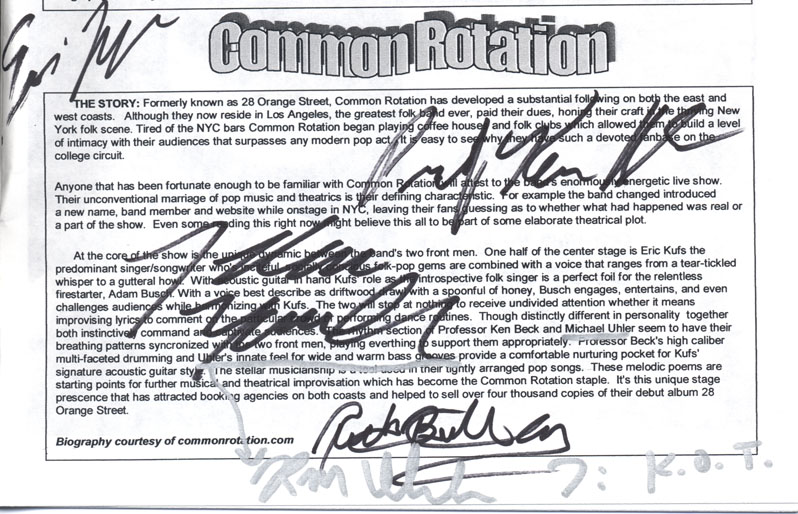 Common Rotation
THE STORY: Formerly known as 28 Orange Street, Common Rotation has developed a substantial following on both the east and
west coasts.  Although they now reside in Los Angeles, the greatest folk band ever, paid their dues, honing their craft in the thriving New
York folk scene. Tired of the NYC bars Common Rotation began playing coffee houses and folk clubs which allowed them to build a level
of intimacy with their audiences that surpasses any modern pop act. It is easy to see why they have such a devoted fanbase on the
college circuit.
Anyone that has been fortunate enough to be familiar with Common Rotation will attest to the band's enormously energetic live show.
Their unconventional marriage of pop music and theatrics is their defining characteristic.  For example the band changed introduced
a new name, band member and website while onstage in NYC, leaving their fans guessing as to whether what had happened was real or
a part of the show.  Even some reading this right now might believe this all to be part of some elaborate theatrical plot.
At the core of the show is the unique dynamic between the band's two front men.  One half of the center stage is Eric Kufs the
predominant singer/songwriter who's folk-pop gems are combined with a voice that ranges from a tear-tickled
whisper to a gutteral howl.  With acoustic guitar in hand Kufs' role as the introspective folk singer is a perfect foil for the relentless
firestarter, Adam Busch. With a voice best describe as driftwood drawl with a spoonful of honey, Busch engages, entertains, and even
challenges audiences while harmonizing with Kufs.  The two will stop at nothing to receive undivided attention whether it means
improvising lyrics to comment on the particular crowd or performing dance routines.  Though distinctly different in personality  together
both instinctively command and captivate audiences.  The rhythm section of Professor Ken Beck and Michael Uhler seem to have their
breathing patterns syncronized with the two front men, playing everthing to support them appropriately.  Professor Beck's high caliber
multi-faceted drumming and Uhler's innate feel for wide and warm bass grooves provide a comfortable nurturing pocket for Kufs'
signature acoustic guitar style.  The stellar musicianship is a tool used in their tightly arranged pop songs.  These melodic poems are
starting points for further musical and theatrical improvisation which has become the Common Rotation staple.  It's this unique stage
prescence that has attracted booking agencies on both coasts and helped to sell over four thousand copies of their debut album 28
Orange Street.
Biography courtesy of commonrotation.com
K.O.T.